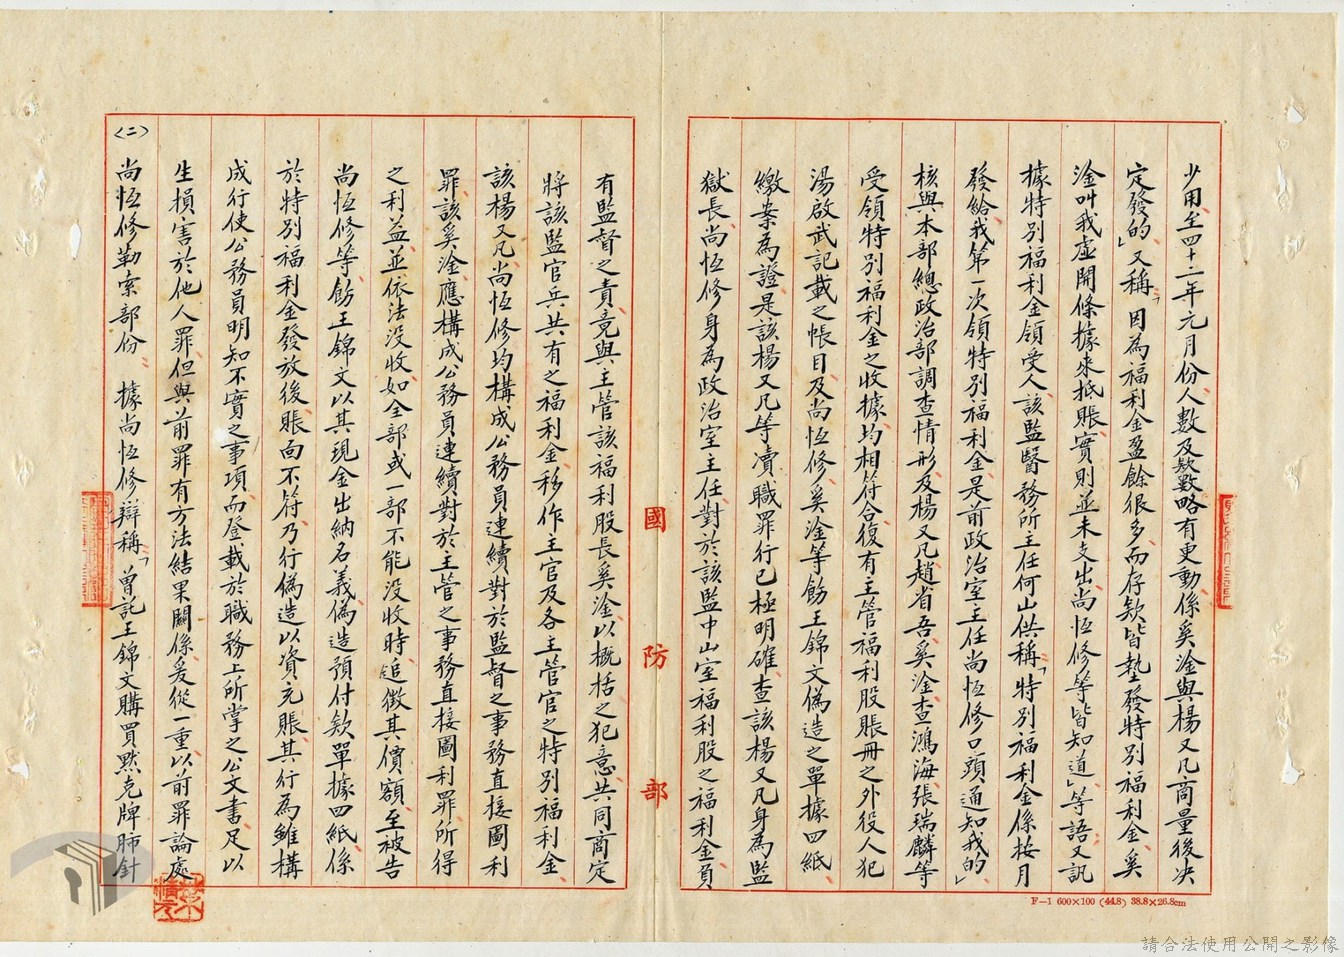 少用至四十二年元月份人數及欵數略有更動係奚淦與楊又凡商量後决
定發的」又稱「因為福利金盈餘很多而存欵皆墊發特別福利金奚
淦叫我虛開條據來抵賬實則並未支出尚恆修等皆知道」等語又訊
據特別福利金領受人該監醫務所主任何山供稱「特別福利金係按月
發給我第一次領特別福利金是前政治室主任尚恆修口頭通知我的」
核與本部總政治部調查情形及楊又凡趙省吾奚淦查鴻海張瑞麟等
受領特別福利金之收據均相符合復有主管福利股賬冊之外役人犯
湯啟武記載之帳目及尚恆修奚淦等飭王錦文偽造之單據四紙
繳案為證是該楊又凡等瀆職罪行已極明確查該楊又凡身為監
獄長尚恆修身為政治室主任對於該監中山室福利股之福利金負
國防部
有監督之責竟與主管該福利股長奚淦以概括之犯意共同商定
將該監官兵共有之福利金移作主官及各主管官之特別福利金
該楊又凡尚恆修均構成公務員連續對於監督之事務直接圖利
罪該奚淦應構成公務員連續對於主管之事務直接圖利罪所得
之利益並依法沒收如全部或一部不能沒收時追徵其價額至被告
尚恆修等飭王錦文以其現金出納名義偽造預付欵單據四紙係
於特別福利金發放後賬面不符乃行偽造以資充賬其行為雖構
成行使公務員明知不實之事項而登載於職務上所掌之公文書足以
生損害於他人罪但與前罪有方法結果關係爰從一重以前罪論處
〈二〉尚恆修勒索部份 據尚恆修辯稱「曾託王錦文購買默克牌肺針
F-1 600×100 (44.8) 38.8×26.8cm
請合法使用公開之影像